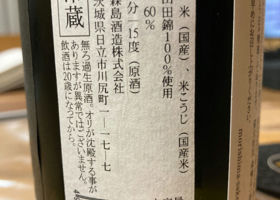 米（国産）、米こうじ（国産米）
山田錦100％使用
60％
分15度（原酒）
森島酒造株式会社
茨城県日立市川尻町一ー一七ー七
無ろ過生原酒。オリが沈殿する事が
ありますが異常ではございません。
飲酒は20歳になってから。
蔵